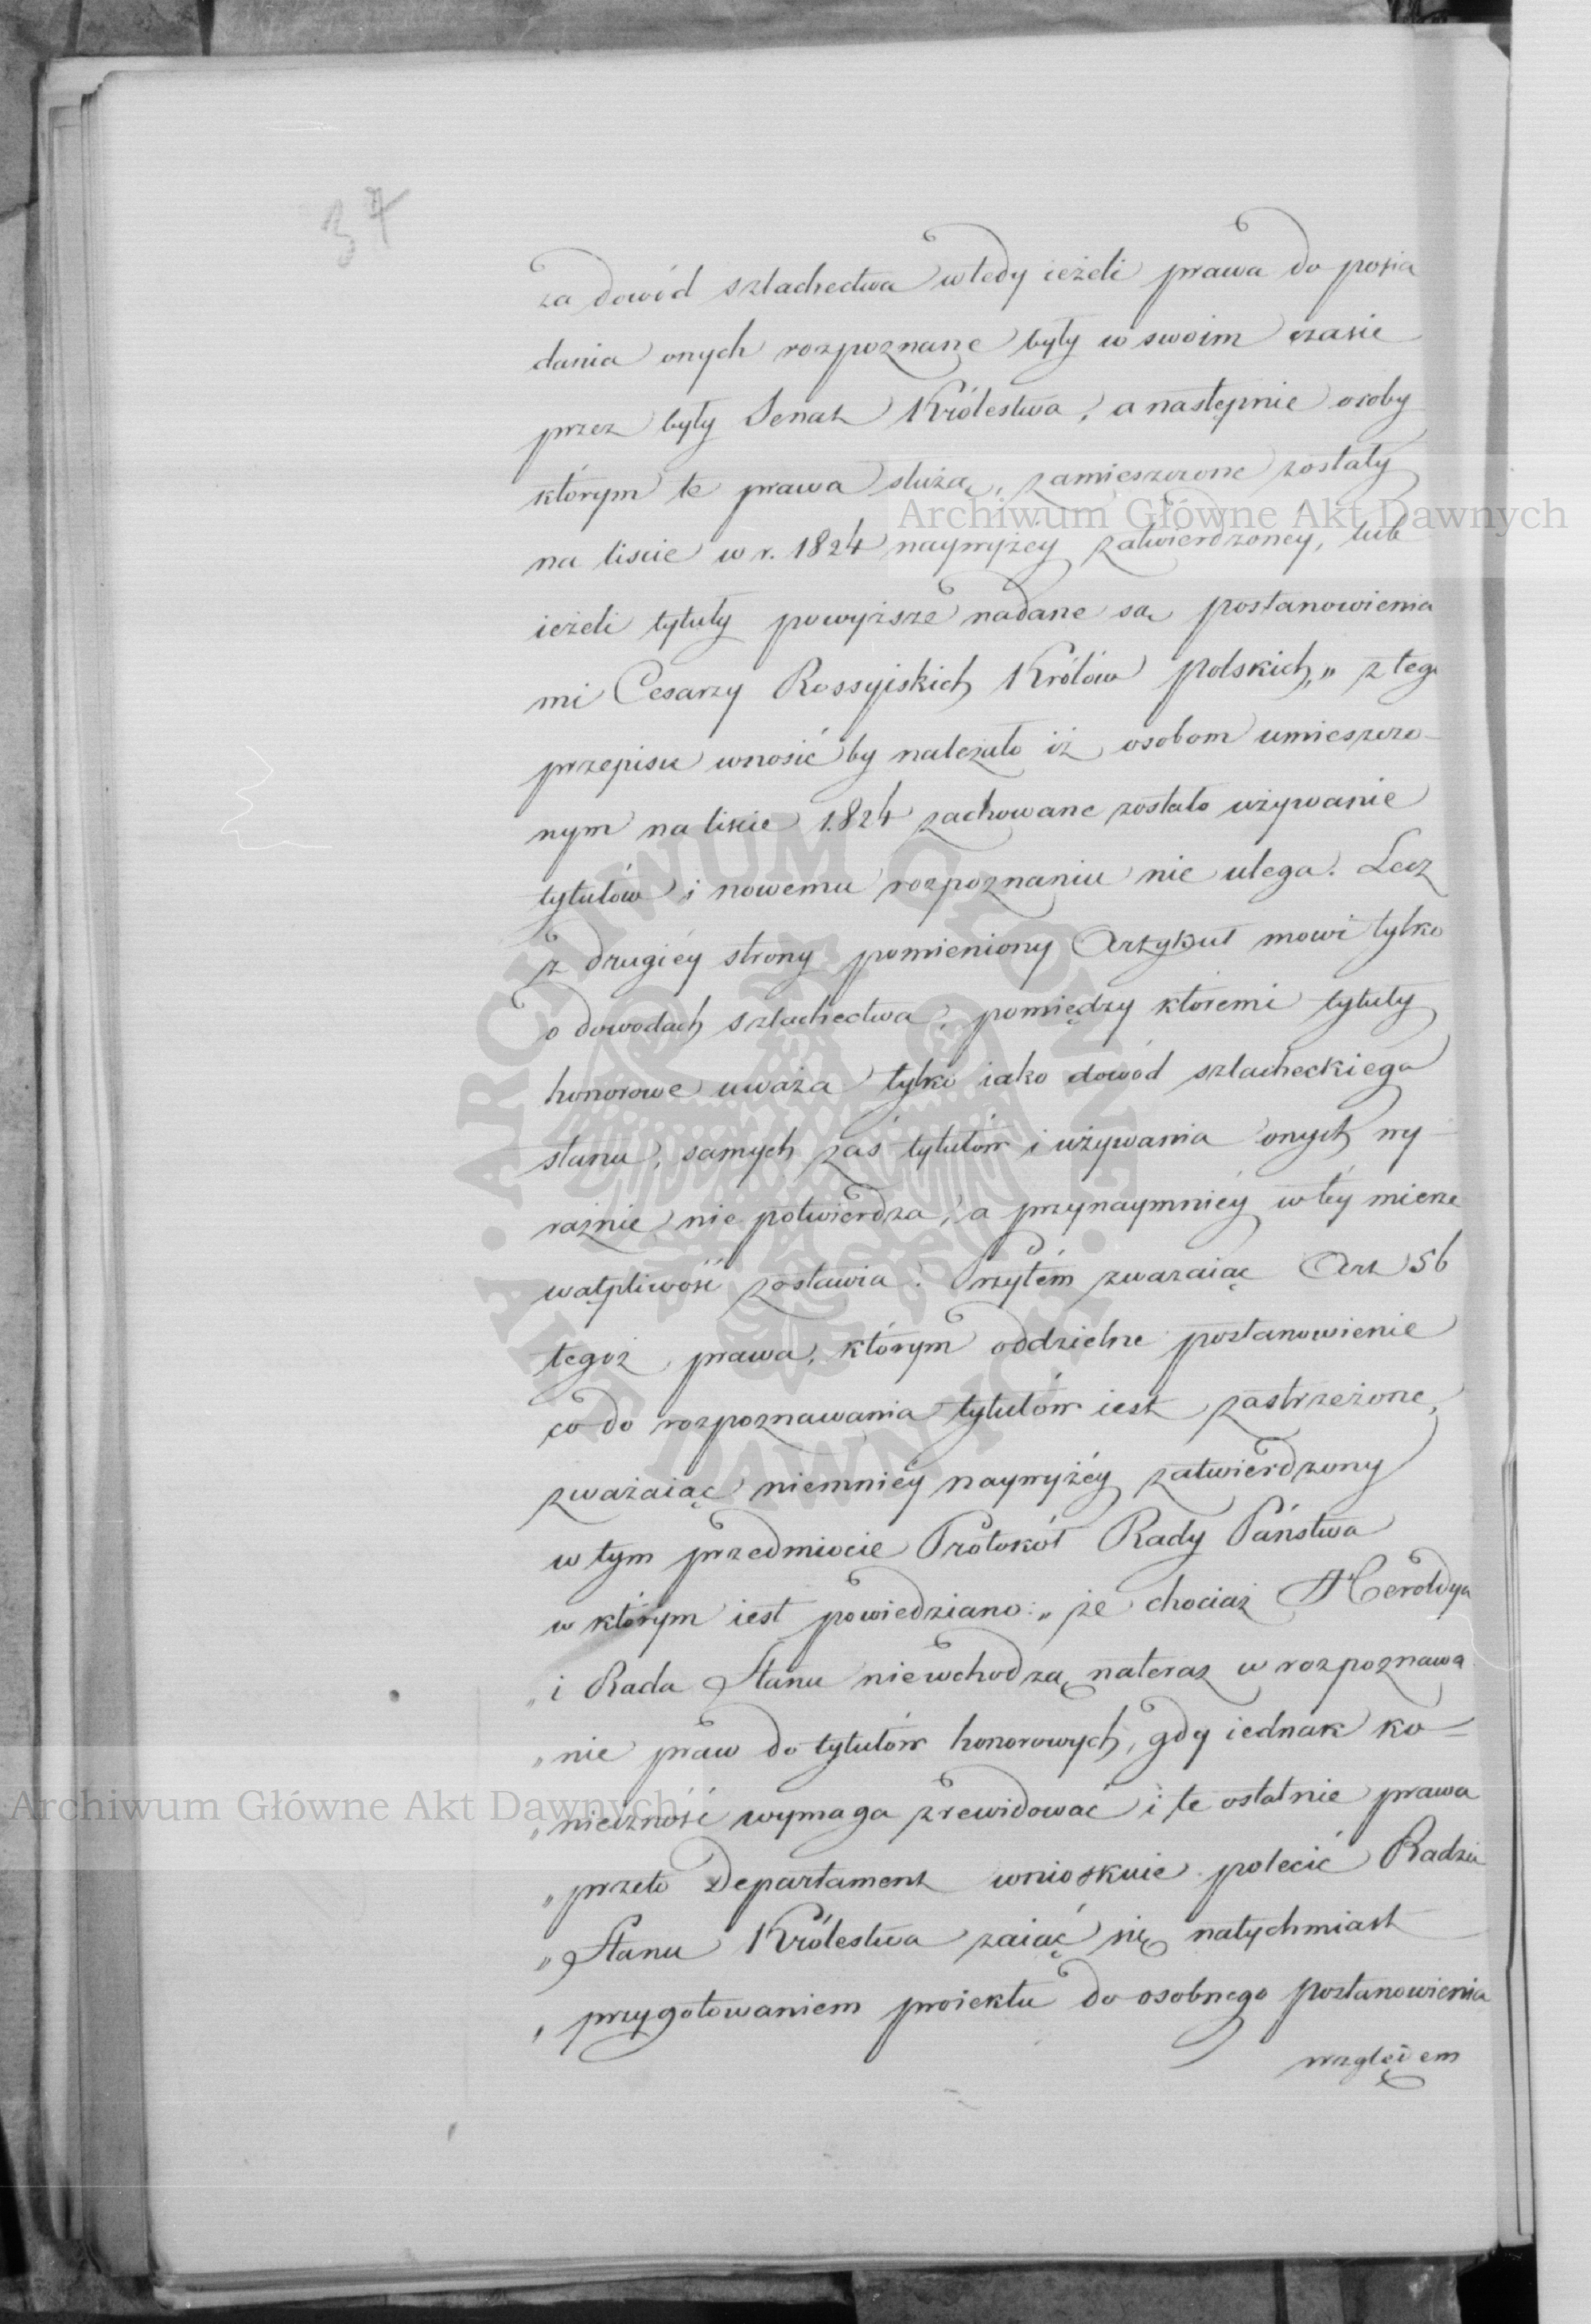 37
za dowód szlachectwa wtedy ieżeli prawa do posia
dania onych rozpoznane były w swoim czasie
przez były Senat Królestwa, a następnie osoby
którym te prawa służą, zamieszczone zostały
na liscie w r. 1824 naywyżéy zatwierdzonéy, lub
ieżeli tytuły powyższe nadane są postanowienia
mi Cesarzy Rossyiskich Królów Polskich," z tego
przepisu wnosić by należało iż osobom umieszczo-
nym na liscie 1824 zachowane zostało używanie
tytułów i nowemu rozpoznaniu nie ulega. Lecz
z drugiéy strony pomieniony Artykuł mowi tylko
o dowodach szlachectwa, pomiędzy któremi tytuły
honorowe uważa tylko iako dowód szlacheckiego
stanu, samych zaś tytułów i używania onych wy-
raźnie nie potwierdza, a przynaymniéy w téy mierze
wątpliwość zostawia. Przytém zważaiąc Art 56
tegoż prawa, którym oddzielne postanowienie
co do rozpoznawania tytułów iest zastrzeżone,
zważaiąc niemniéy naywyżéy zatwierdzony
w tym przedmiocie Protokół Rady Państwa
w którym iest powiedziano: „że chociaż Heroldya
„i Rada Stanu niewchodzą nateraz w rozpoznawa
„nie praw do tytułów honorowych, gdy iednak ko-
„nieczność wymaga zrewidować i te ostatnie prawa
„przeto Departament wnioskuie polecić Radzie
„Stanu Królestwa zaiąć się natychmiast
„przygotowaniem proiektu do osobnego postanowienia
względem
Archiwum Główne Akt Dawnych
Archiwum Główne Akt Dawnych
ARCHIWUM GŁÓWNE AKT DAWNYCH